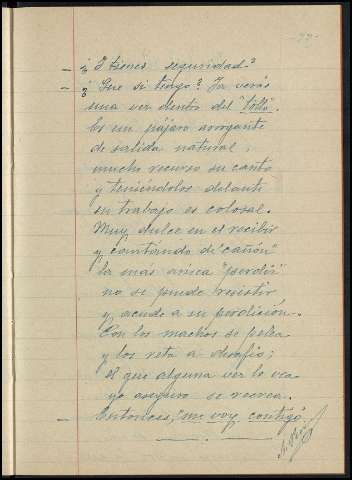 -77-
— ¿I tienes seguridad?
— ¿Que si tengo? Ya verás
una vez dentro del "tollo".
Es un pájaro arrogante
de salida natural;
mucho recurso su canto
y teniéndolos delante
su trabajo es colosal.
Muy dulce en el recibir
y cantando de "cañón"
la más arisca "perdiz"
no se puede resistir
y acude a su perdición.
Con los machos se pelea
y los reta a desafío;
el que alguna vez le vea
yo aseguro se recrea.
— Entonces, me voy contigo